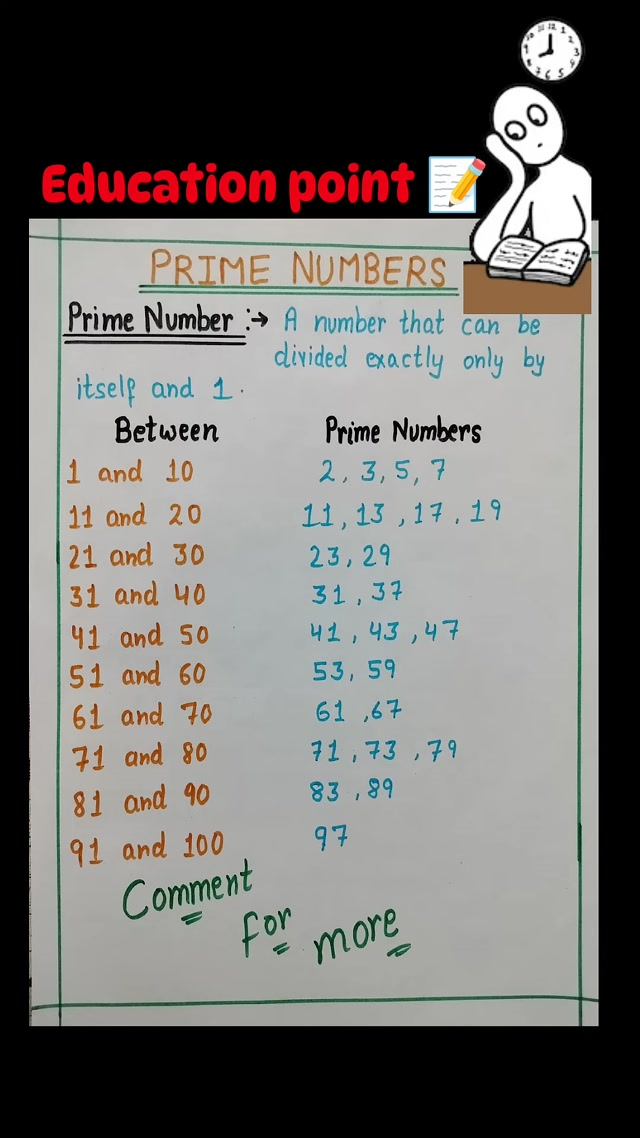 Education point
PRIME NUMBERS
Prime Number :→ A number that can be
divided exactly only by
itself and 1.
Between Prime Numbers
1 and 10 2, 3, 5, 7
11 and 20 11, 13, 17, 19
21 and 30 23, 29
31 and 40 31, 37
41 and 50 41, 43, 47
51 and 60 53, 59
61 and 70 61, 67
71 and 80 71, 73, 79
81 and 90 83, 89
91 and 100 97
Comment
for more